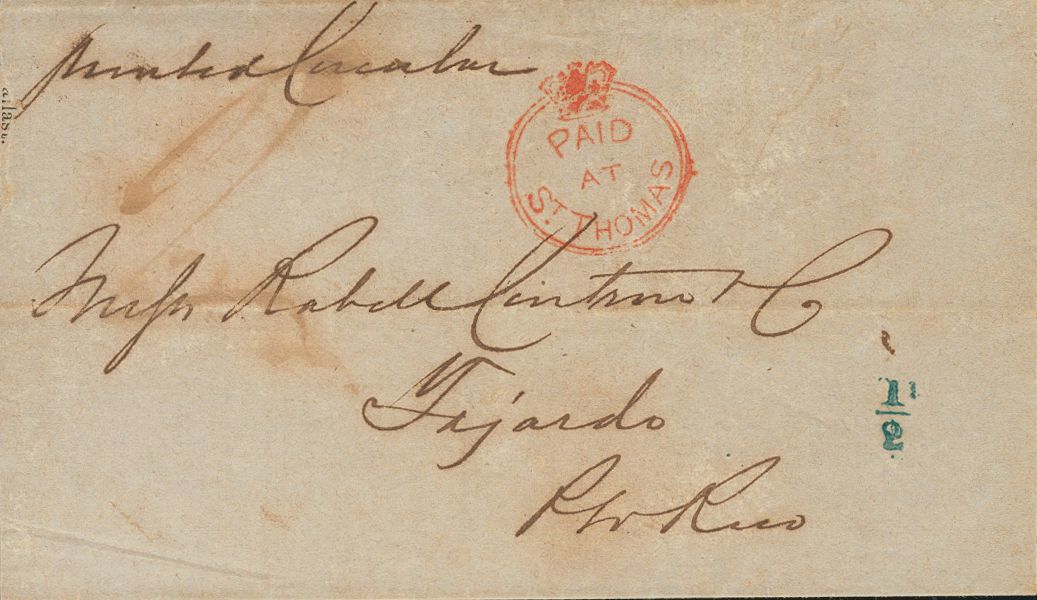 Printed Circular
PAID
AT
ST. THOMAS
Messrs Rabell Cintron & C
Fajardo
Pto Rico
1/2